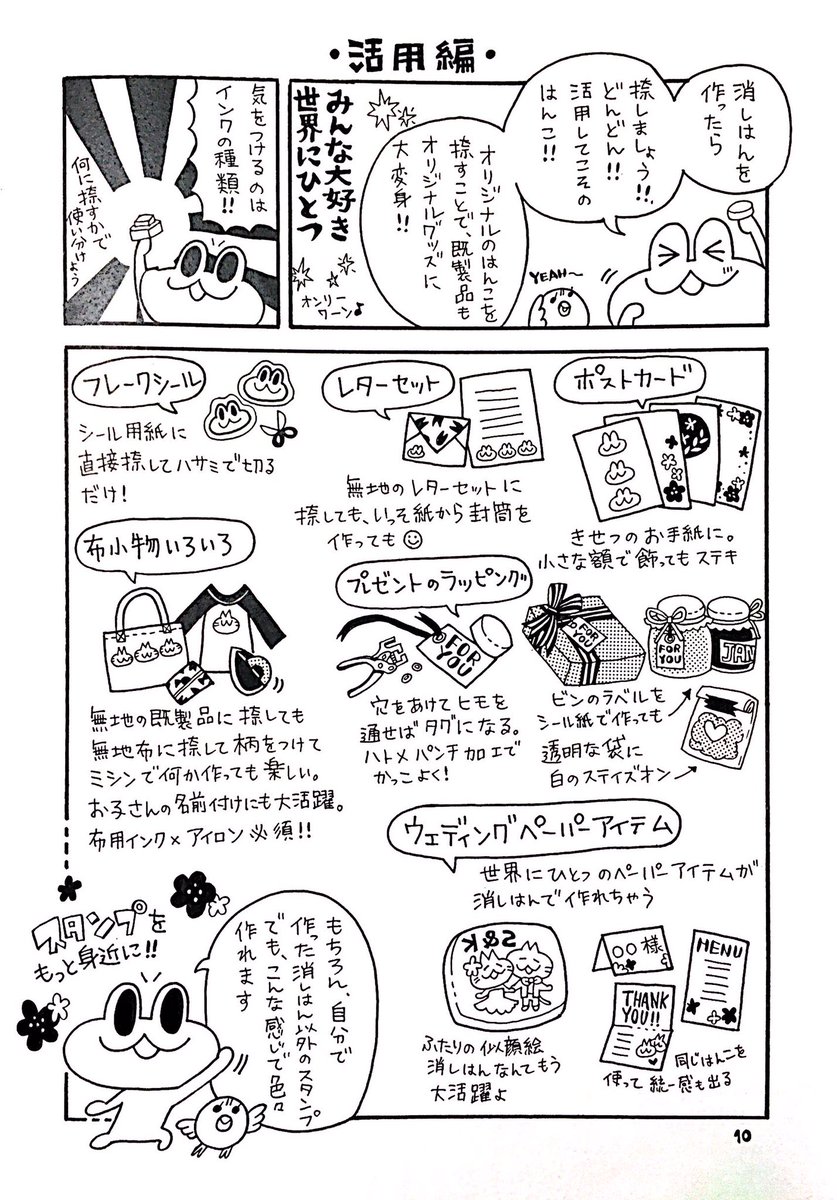 ・活用編・
消しはんを
作ったら
捺しましょう!!
どんどん!!
活用してこその
はんこ!!
オリジナルのはんこを
捺すことで、既製品も
オリジナルグッズに
大変身!!
みんな大好き
世界にひとつ
オンリー
ワーン♪
YEAH〜
気をつけるのは
インクの種類!!
何に捺すかで
使い分けよう
フレークシール
シール用紙に
直接捺してハサミで切る
だけ!
レターセット
無地のレターセットに
捺しても、いっそ紙から封筒を
作っても☺
ポストカード
きせつのお手紙に。
小さな額で飾ってもステキ
布小物いろいろ
無地の既製品に捺しても
無地布に捺して柄をつけて
ミシンで何か作っても楽しい。
お子さんの名前付けにも大活躍。
布用インク×アイロン必須!!
プレゼントのラッピング
FOR
YOU
穴をあけてヒモを
通せばタグになる。
ハトメパンチ加工で
かっこよく!
FOR
YOU
FOR
YOU
JAN
ビンのラベルを
シール紙で作っても
透明な袋に
白のステイズオン
ウェディングペーパーアイテム
世界にひとつのペーパーアイテムが
消しはんで作れちゃう
S&K
ふたりの似顔絵
消しはんなんてもう
大活躍よ
○○様
MENU
THANK
YOU!!
同じはんこを
使って統一感も出る
スタンプを
もっと身近に!!
もちろん、自分で
作った消しはん以外のスタンプ
でも、こんな感じで色々
作れます
10